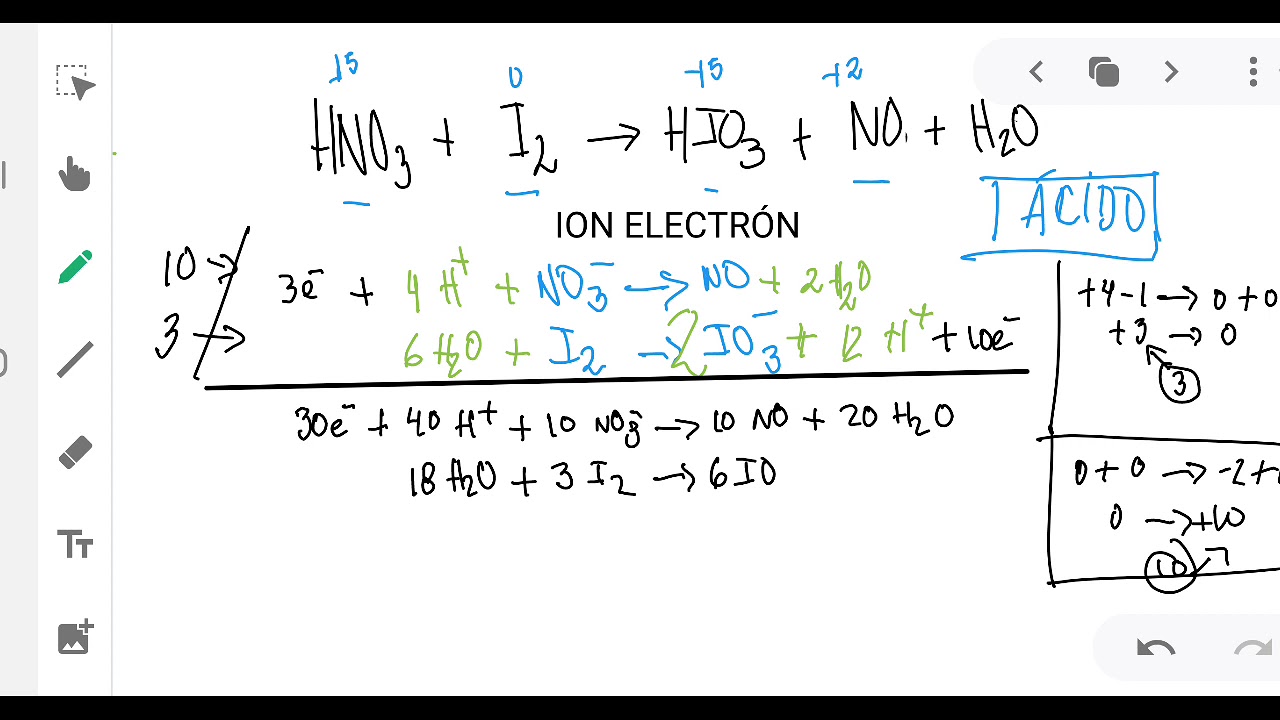 +5 0 +5 +2
HNO3 + I2 → HIO3 + NO + H2O
ÁCIDO
ION ELECTRÓN
10 → 3e⁻ + 4H⁺ + NO3⁻ → NO + 2H2O
3 → 6H2O + I2 → 2IO3⁻ + 12H⁺ + 10e⁻
30e⁻ + 40H⁺ + 10NO3⁻ → 10NO + 20H2O
18H2O + 3I2 → 6IO
+4-1 → 0+0
+3 → 0
3
0+0 → -2+
0 → +10
10
TT